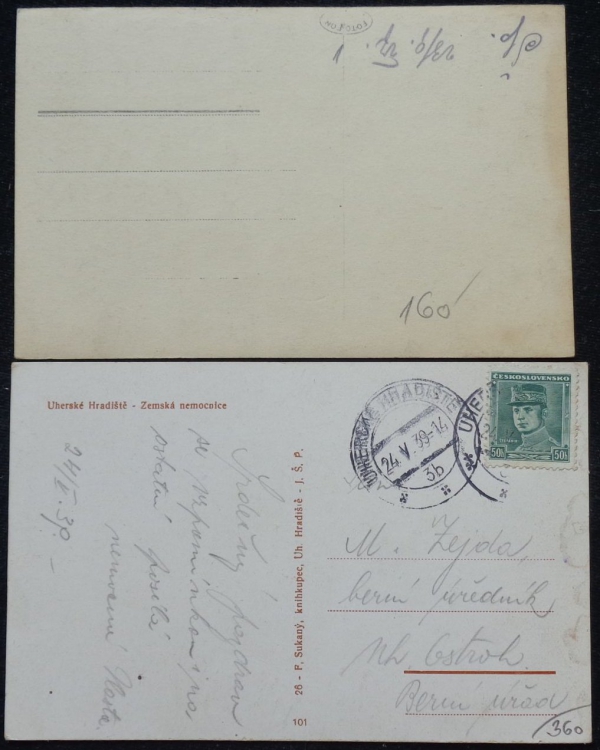 FOTOFON
160
Uherské Hradiště - Zemská nemocnice
UHERSKÉ HRADIŠTĚ
24.V.39-14
3b
UHER
ČESKOSLOVENSKO
50h 50h
Srdečný pozdrav
se vzpomínkou na
ostatní posílá
nemocná Vlasta.
24/V. 39.
26 - P. Sukaný, knihkupec, Uh. Hradiště - J. Š. P.
101
M. Zejda,
berní úředník
Uh. Ostroh
Berní úřad
360